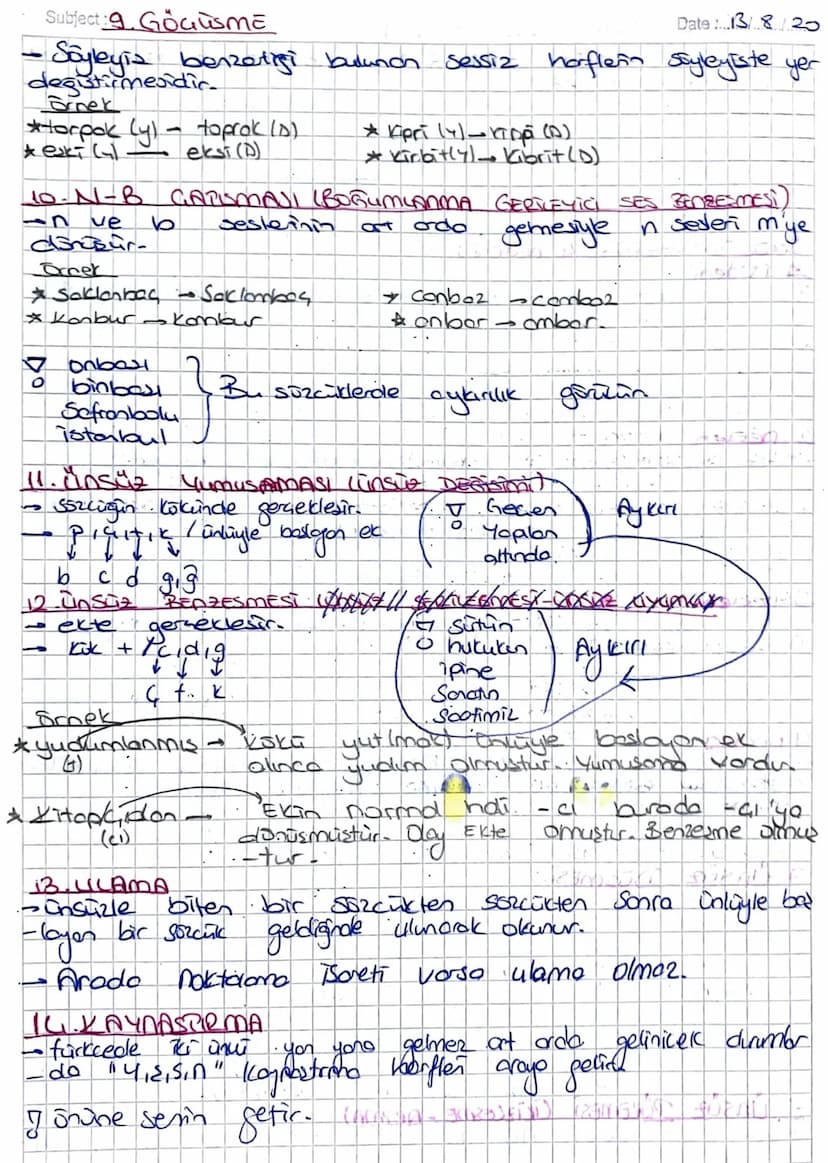 Subject: 9. GÖÇÜŞME
Date: 13/8/20
- Söyleyiş benzerliği bulunan sessiz harflerin söyleyişte yer
değiştirmesidir.
Örnek
*torpak (y) - toprak (D)
* kipri (y) →
* eski (y) — eksi (D)
* kirbit (y) → kibrit (D)
10. N-B ÇATIŞMASI (BOĞUMLANMA GERİLEYİCİ SES BENZEŞMESİ)
→ n ve b seslerinin art arda gemesiyle n sesleri m'ye
dönüşür.
Örnek
* Saklanbaç → Saklambaç
* canbaz → cambaz
* Kanbur → Kambur
* anbar → ambar.
onbaşı
binbaşı
Safranbolu
istanbul
Bu sözcüklerde aykırılık görülün
11. ÜNSÜZ YumuşAMASI (ÜNSÜZ DEĞİŞİMİ)
→ sözcüğün kökünde gerçekleşir.
→ p, ç, t, k / ünlüyle başlayan ek
b c d g,ğ
Geçen
Yapılan
altında
Aykırı
12. ÜNSÜZ BENZEŞMESİ
→ ekte gerçekleşir.
→ kök + / c, d, g
ç t. k
Sütün
hukukun
ipine
Sanatın
Saatimiz
Aykırı
Örnek
* yudumlanmış → Kökü yut(mak) ünlüyle başlayan ek
(t)
alınca yudum olmuştur. Yumuşama vardır.
* Kitapçıdan - Ekin normal hali -cı burada -çı'ya
(cı)
dönüşmüştür. Olay Ekte omuştur. Benzeşme olmuş
-tur.
13. ULAMA
→ Ünsüzle biten bir sözcükten sözcükten Sonra ünlüyle baş
-layan bir sözcük geldiğinde ulunarak okunur.
→ Arada noktalama işareti varsa ulama olmaz.
14. KAYNAŞTIRMA
→ türkçede iki ünlü yan yana gelmez art arda gelinicek durumlar
-da "y, ş, s, n" kaynaştırma harfleri araya gelir
önüne senin getir.